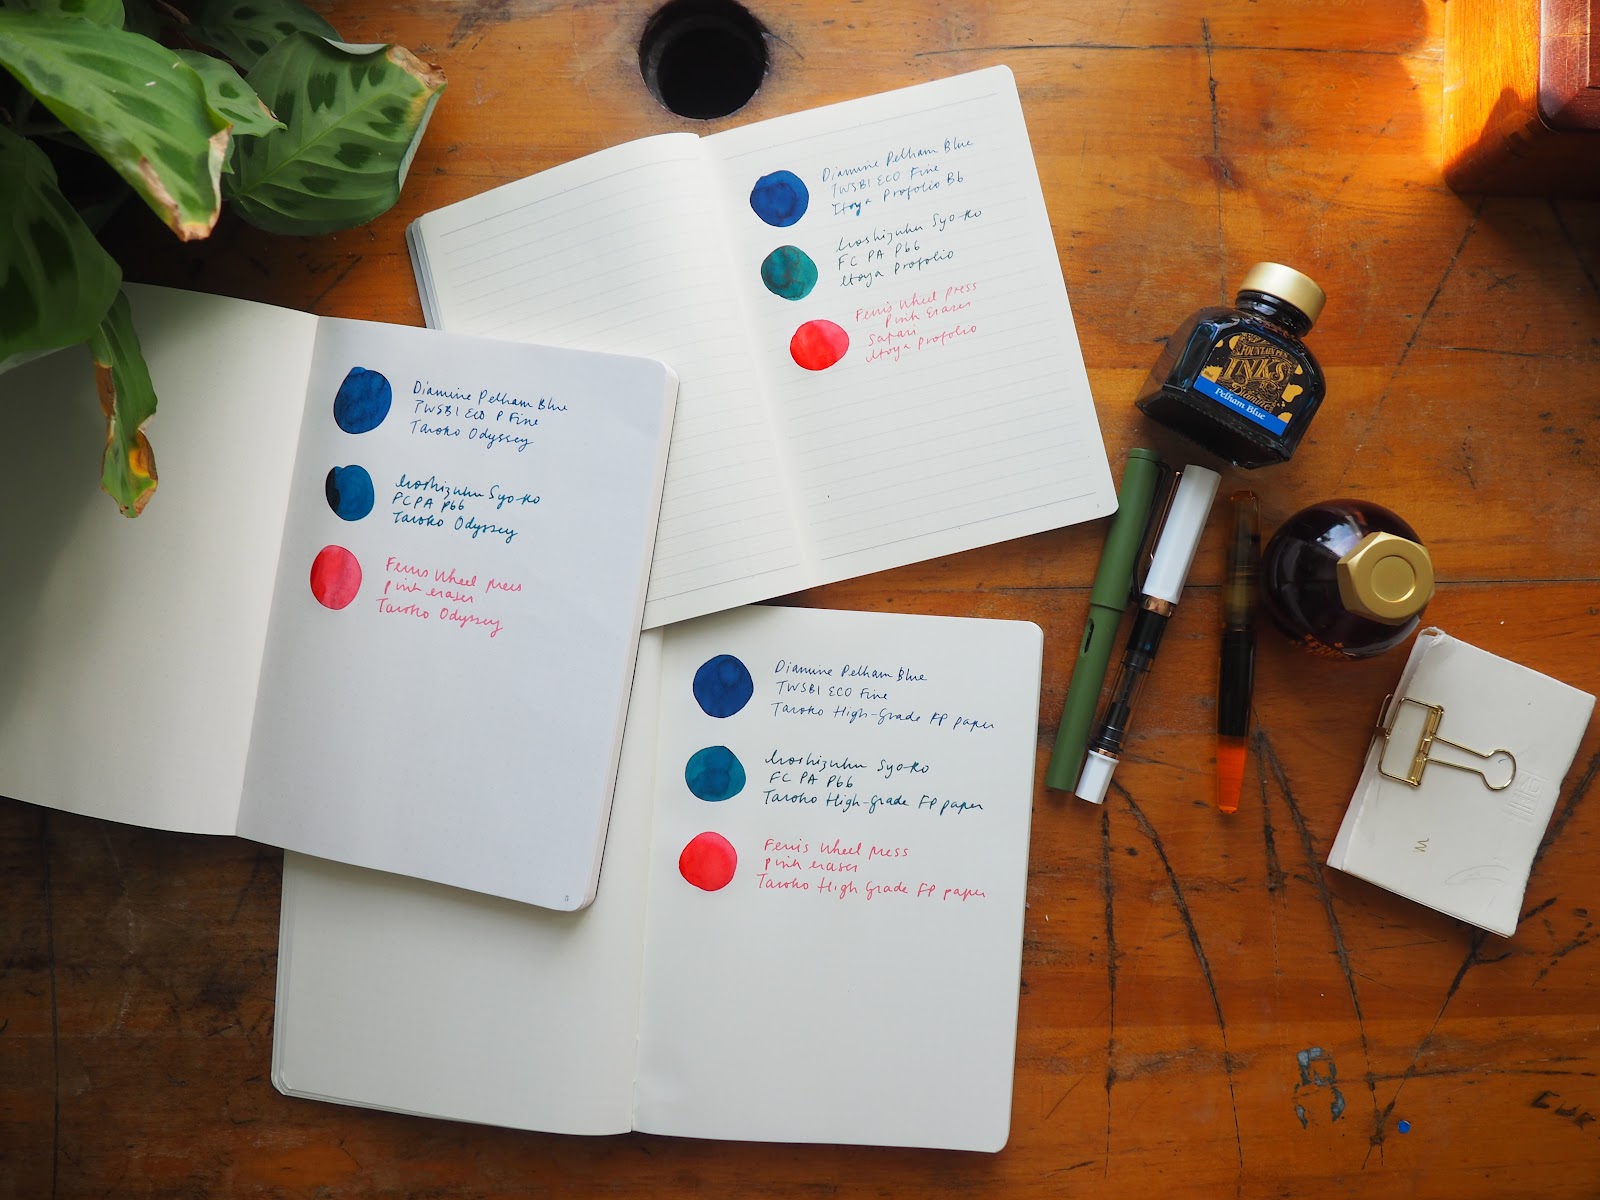 Diamine Pelham Blue
TWSBI ECO Fine
Itoya Profolio B6
Iroshizuku Syo-ro
FC PA P66
Itoya Profolio
Ferris Wheel Press
Pink Eraser
Safari
Itoya Profolio
Diamine Pelham Blue
TWSBI ECO P Fine
Taroko Odyssey
Iroshizuku Syo-ro
FC PA P66
Taroko Odyssey
Ferris Wheel press
pink eraser
Taroko Odyssey
Diamine Pelham Blue
TWSBI ECO Fine
Taroko High-Grade FP paper
Iroshizuku Syo-ro
FC PA P66
Taroko High-Grade FP paper
Ferris Wheel press
pink eraser
Taroko High Grade FP paper
FOUNTAIN PEN
INKS
Diamine
Pelham Blue